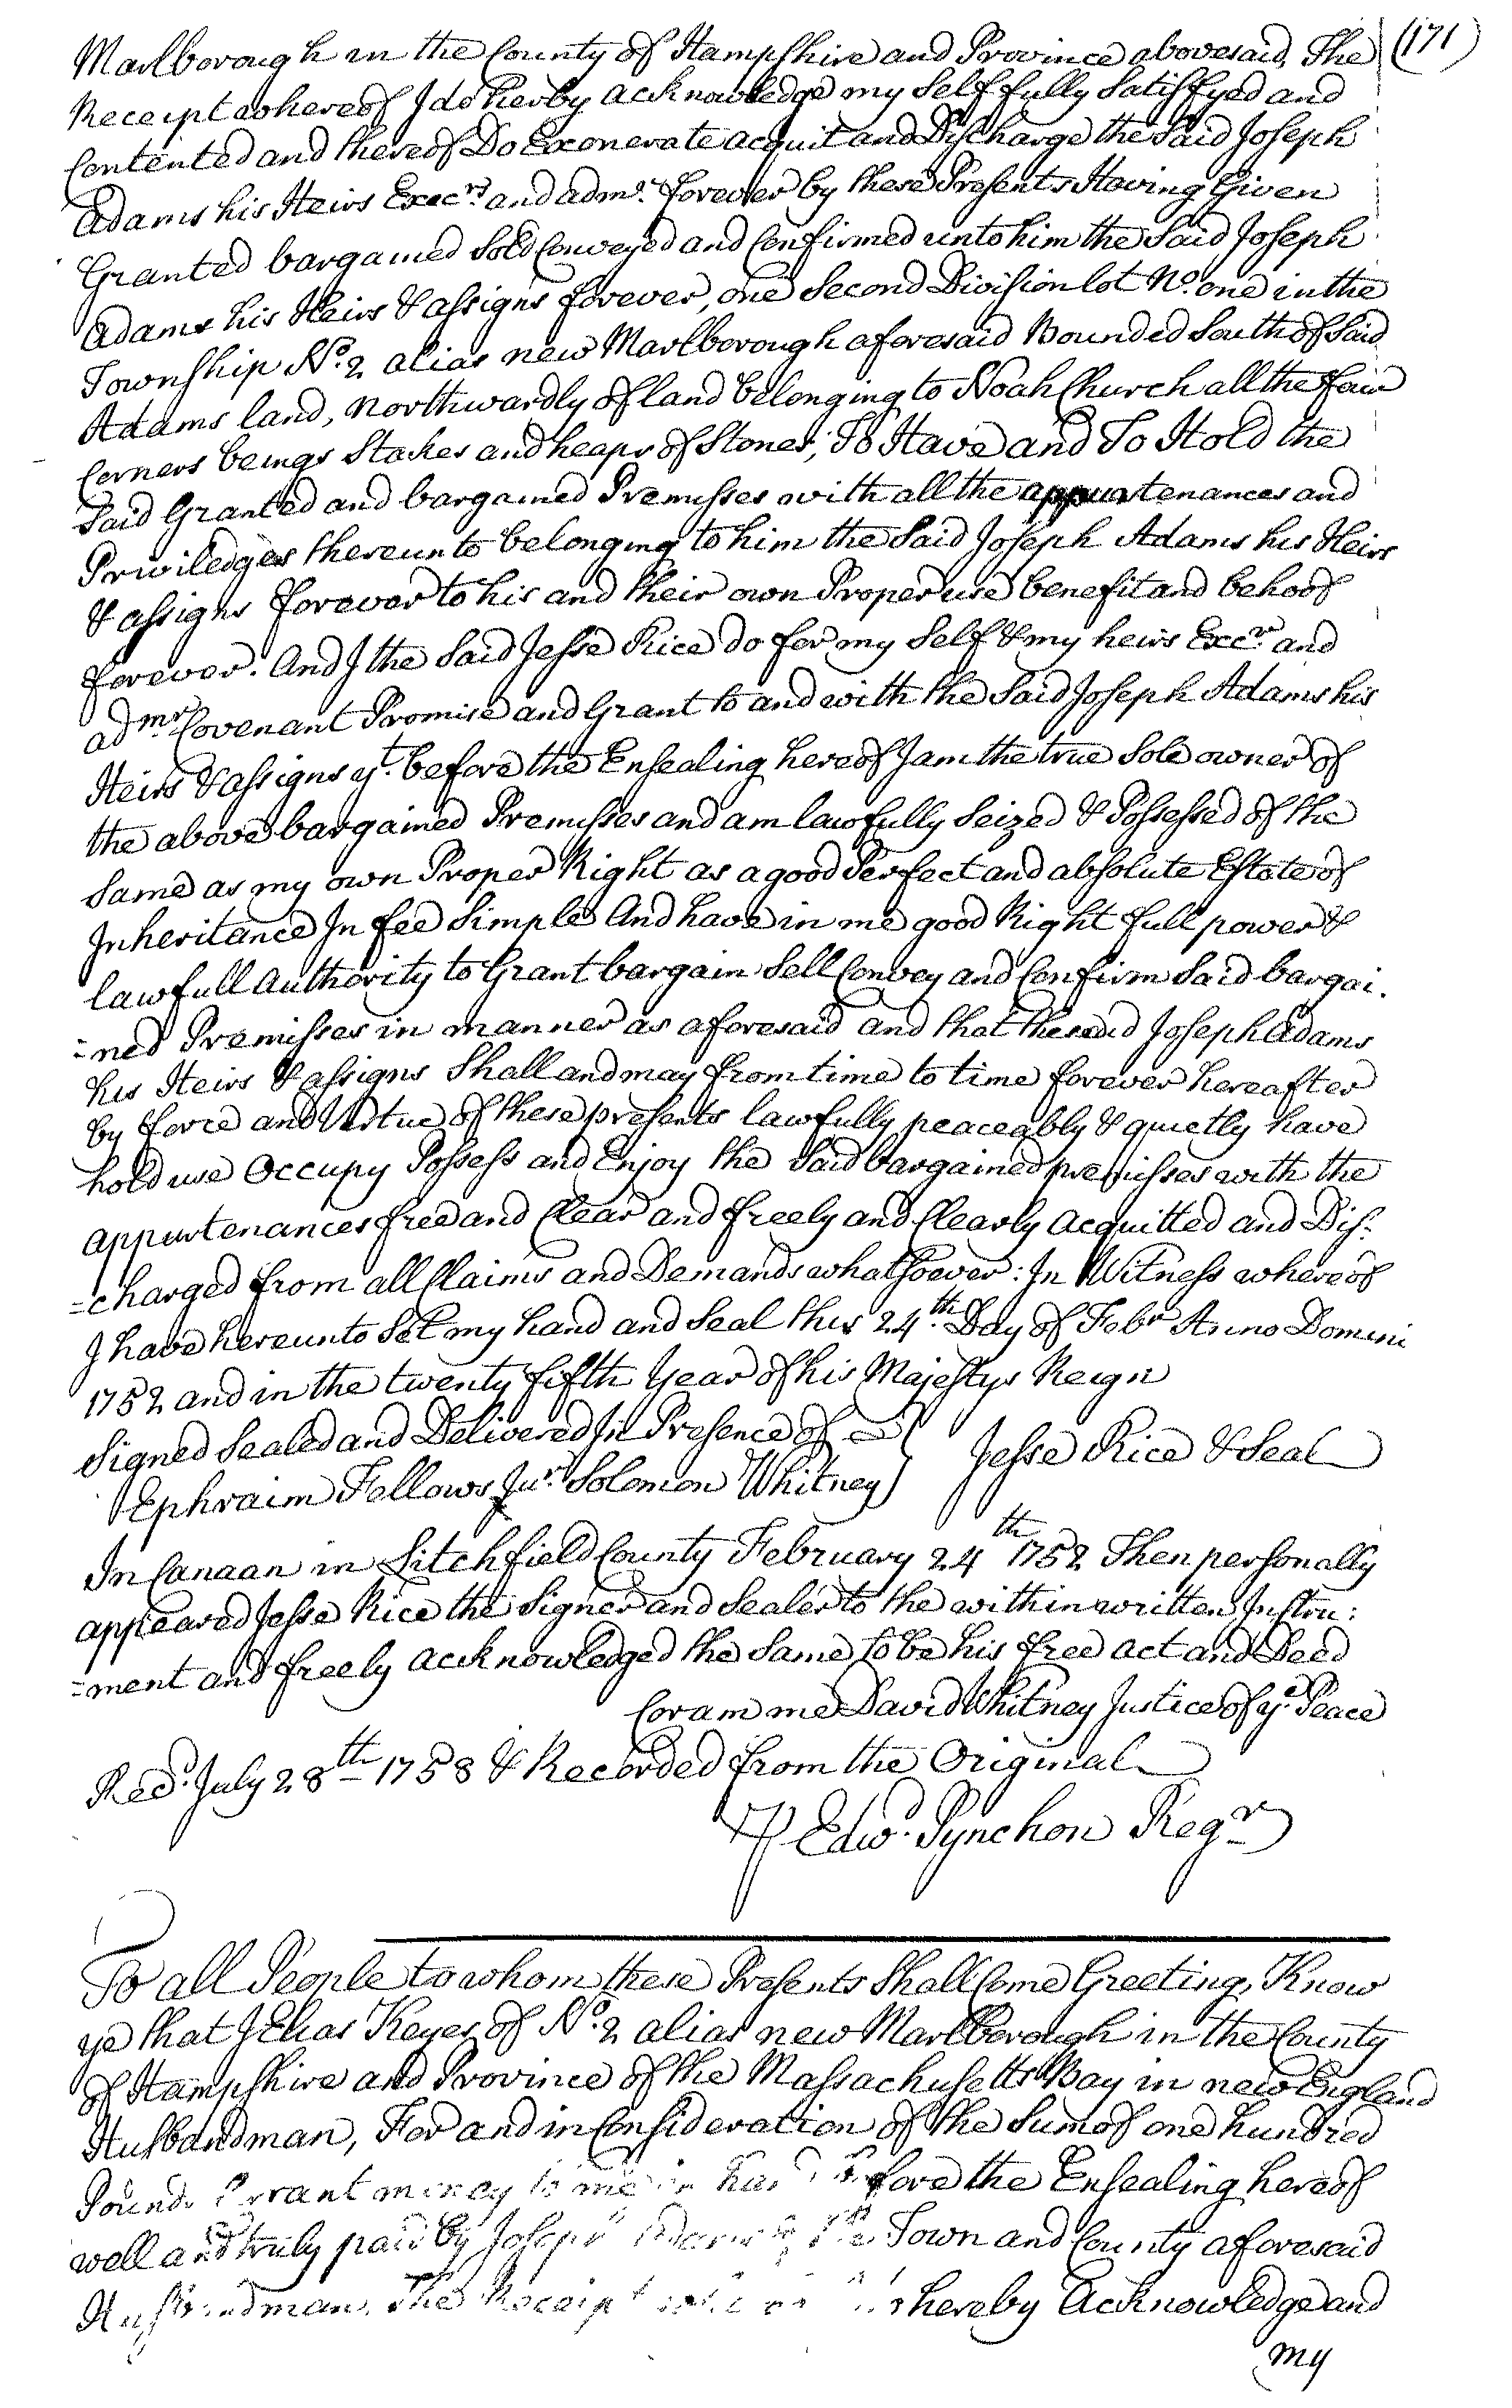 Marlborough in the County of Hampshire and Province abovesaid, The (171)
Receipt whereof I do herby acknowledge my Self fully Satisfyed and
Contented and thereof Do Exonerate acquit and Discharge the Said Joseph
Adams his Heirs Execrs. and admr. forever by these Presents Having Given
Granted bargained Sold Conveyed and Confirmed unto him the Said Joseph
Adams his Heirs & assigns forever, one Second Division lot No. one in the
Township No. 2 alias new Marlborough aforesaid Bounded South of Said
Adams land, Northwardly of land belonging to Noah Church all the four
Corners beings Stakes and heaps of Stones; To Have and To Hold the
Said Granted and bargained Premisses with all the appurtenances and
Priviledges thereunto belonging to him the Said Joseph Adams his Heirs
& assigns forever to his and their own Proper use benefit and behoof
forever. And I the Said Jesse Rice do for my Self & my heirs Execr. and
admrs. Covenant Promise and Grant to and with the Said Joseph Adams his
Heirs & assigns yt. before the Ensealing hereof I am the true Sole owner of
the above bargained Premisses and am lawfully Seized & Possessed of the
Same as my own Proper Right as a good Perfect and absolute Estate of
Inheritance In fee Simple And have in me good Right full power &
lawfull Authority to Grant bargain Sell Convey and Confirm Said bargai.
=ned Premisses in manner as aforesaid and that the said Joseph Adams
his Heirs & assigns Shall and may from time to time forever hereafter
by force and Virtue of these presents lawfully peaceably & quietly have
hold use Occupy Possess and Enjoy the Said bargained premisses with the
appurtenances free and Clear and freely and Clearly acquitted and Dis:
=charged from all Claims and Demands whatsoever: In Witness whereof
I have hereunto Set my hand and Seal this 24th. Day of Febr Anno Domini
1752 and in the twenty fifth Year of his Majestys Reign
Signed Sealed and Delivered In Presence of
Jesse Rice & Seal
Ephraim Fellows Jur. Solomon Whitney
In Canaan in Litchfield County February 24th 1752 Then personally
appeared Jesse Rice the Signer and Sealer to the within written Instru:
=ment and freely acknowledged the Same to be his free act and Deed
Coram me David Whitney Justice of ye. Peace
Recd. July 28th 1758 & Recorded from the Original
P Edwd. Pynchon Regr
To all People to whom these Presents Shall Come Greeting, Know
ye that I Elias Keyes of No. 2 alias new Marlborough in the County
of Hampshire and Province of the Massachusetts Bay in new England
Husbandman, For and in Consideration of the Sum of one hundred
Pounds Currant money to me in hand before the Ensealing hereof
well and truly paid by Joseph Adams the Town and County aforesaid
Husbandman, the Receipt hereby Acknowledge and
my